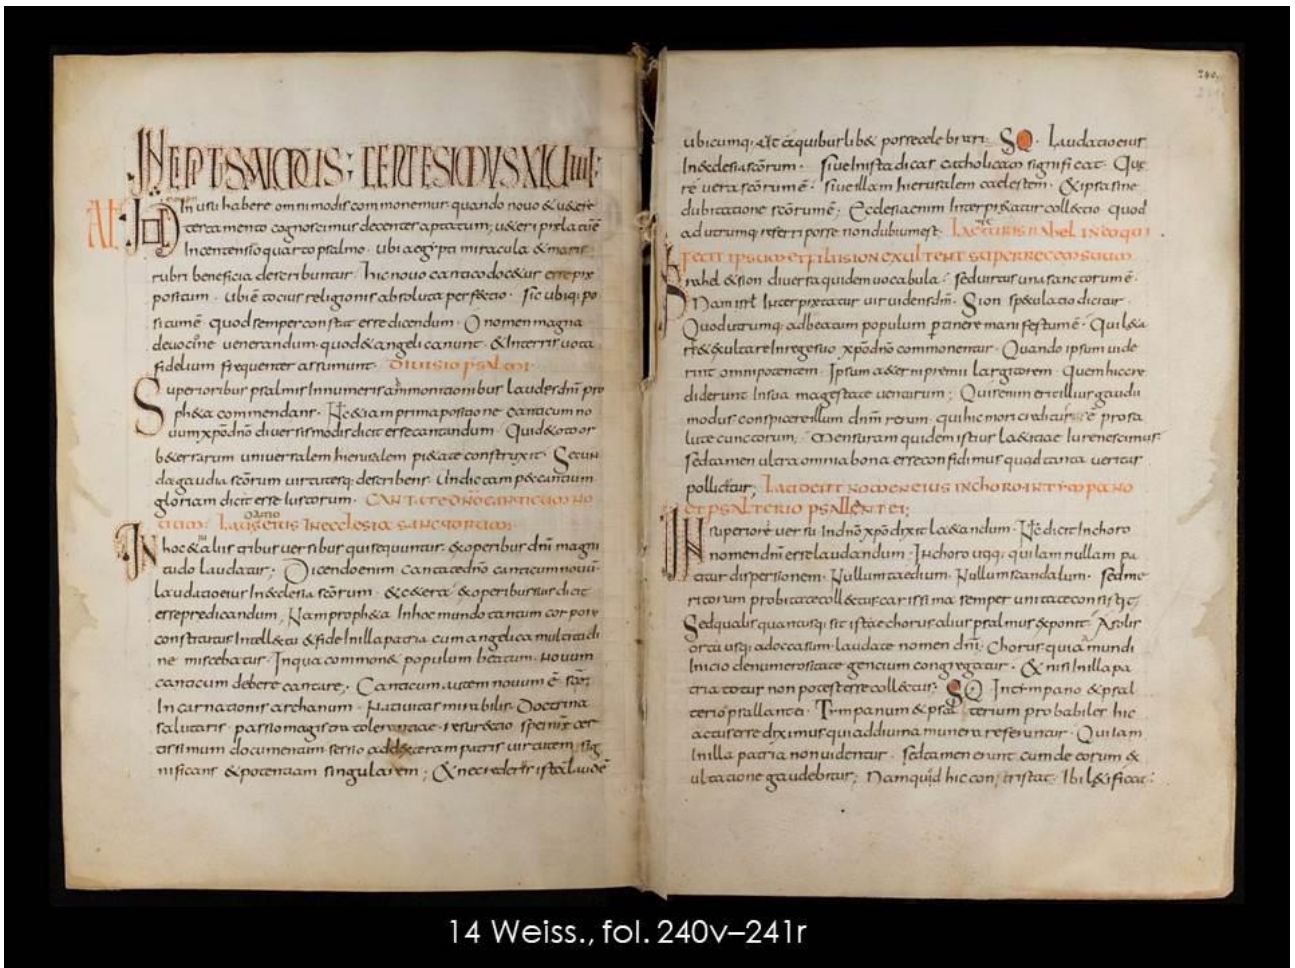 INCIPIT PSALMUS; CENTESIMUS XLVIIII;
IN usu habere omnimodis commonemur quando nouo & uetere
testamento cognoscimus decenter aptatum;
In centensimo quarto psalmo. ubi aegypti miracula & maris
rubri beneficia describuntur. hic nouo cantico doc&ur esse
positum. ubi ē tocius religionis absoluta perfectio. sic ubiq; po
situm ē quod semper constat esse dicendum. O nomen magna
deuotiōe uenerandum. quod & angeli canunt. & In terris uota
fidelium frequenter assumunt. DIUISIO PSALMI.
Superioribus psalmis Innumeris ammonitionibus laudes dnī pro
ph&a commendans. Nc̄ &iam prima positione canticum no
uum xpō dnō diuersis modis dicit esse cantandum. Quid & toto or
be terrarum uniuersalem hierusalem pi&ate construxit. Secun
da gaudia scōrum uirtutesq; describens. Undicam p& cantium
gloriam dicit esse Iustorum. CANTATE DNO CANTICUM NO
UUM. LAUS EIUS IN ECCLESIA SANCTORUM.
IN hoc & aliis tribus uersibus qui sequuntur. & operibus dnī magni
tudo laudatur; Dicendo enim cantate dnō canticum nouū.
Laudatio eius In ecclesia scōrum. & c&era. & operibus suis dicit
esse predicandum, Nam proph&a In hoc mundo tantum corpore
constitutus Intell&tu & fide In illa patria cum angelica multitudi
ne miscebatur. In qua common& populum beatum. nouum
canticum debere cantare; Canticum autem nouum ē
Incarnationis archanum. Natiuitas mirabilis. Doctrina
salutaris. passio magistra tolerantiae. resurectio
tissimum documentum. sessio ad dexteram patris uirtutem sig
nificans & potentiam singularem; & ne crederes
240
ubicumq; a quibuslib& posse celebrari. SQ. Laudatio eius
In ecclesia scōrum. siue In ista dicat catholicam significat. Que
re uera scōrum ē. siue illam hierusalem caelestem. & ipsa sine
dubitatione scōrum ē; Ecclesia enim Interpr&atur coll&tio quod
ad utrumq; referri posse non dubium est. LAETETUR ISRAHEL IN EO QUI
FECIT IPSUM ET FILII SION EXULTENT SUPER REGEM SUUM.
Israhel & sion diuersa quidem uocabula. sed uirtus una sanctorum ē.
Nam isrl Interpr&atur uir uidens dm̄. Sion speculatio dicitur.
Quod utrumq; ad beatum populum ptinere manifestum ē. Qui l&a
ri & exultare In rege suo xpō dnō commonentur. Quando ipsum uide
rint omnipotentem. Ipsum aeterni premii largitorem. Quem hic cre
diderunt In sua magestate uenturum; Quis enim erit illius gaudii
modus conspicere illum dnm̄ rerum. qui hic mori creditus ē pro sa
lute cunctorum; Mensuram quidem istius laetitiae Iure nescimus.
sed tamen ultra omnia bona esse confidimus quod tanta ueritas
pollicetur; LAUDENT NOMEN EIUS IN CHORO IN TYMPANO
ET PSALTERIO PSALLENT EI;
IN superiore uersu In dnō xpō dixit la&andum. Nc̄ dicit In choro
nomen dnī esse laudandum. In choro utiq; qui Iam nullam pa
titur dispersionem. Nullum taedium. Nullum scandalum. sed me
ritorum probitate coll&tus carissima semper unitate consistit;
Sed qualis quantusq; sit iste chorus alius psalmus exponit. A solis
ortu usq; ad occasum laudate nomen dnī. Chorus quia mundi
Inicio de numerositate gentium congregatur. & nisi In illa pa
tria totus non potest esse collectus; SQ. In timpano & psal
terio psallant ei. Tympanum & psal terium probabiliter hic
accusse diximus qui ad diuina munera referuntur. Qui Iam
In illa patria non uidentur. sed tamen erunt cum de eorum ex
ultatione gaudebitur; Nam quid hic contristat. Ibi l&ificat.
14 Weiss., fol. 240v–241r